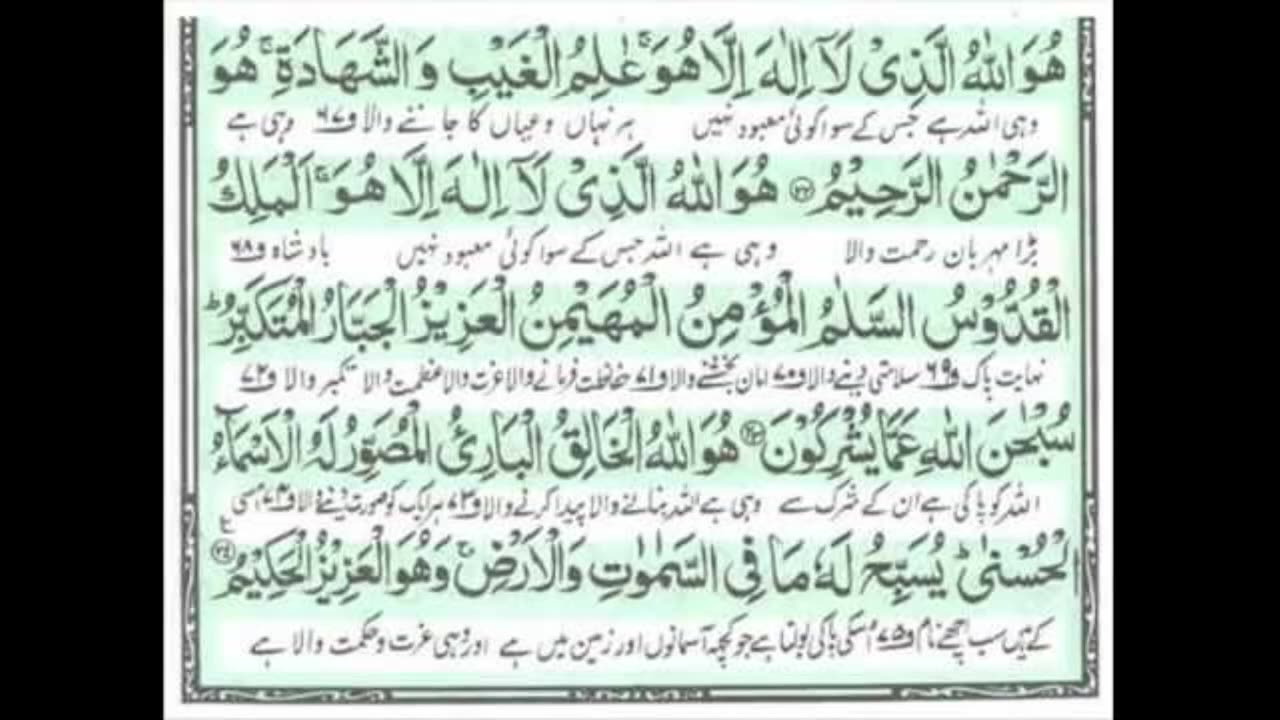 هُوَ اللّٰهُ الَّذِیْ لَاۤ اِلٰهَ اِلَّا هُوَ ۚ عٰلِمُ الْغَیْبِ وَ الشَّهَادَةِ ۚ هُوَ
وہی اللہ ہے جس کے سوا کوئی معبود نہیں ہر نہاں و عیاں کا جاننے والا و۶۷ وہی ہے
الرَّحْمٰنُ الرَّحِیْمُ ﴿۲۲﴾ هُوَ اللّٰهُ الَّذِیْ لَاۤ اِلٰهَ اِلَّا هُوَ ۚ اَلْمَلِكُ
بڑا مہربان رحمت والا وہی ہے اللہ جس کے سوا کوئی معبود نہیں بادشاہ و۶۸
الْقُدُّوْسُ السَّلٰمُ الْمُؤْمِنُ الْمُهَیْمِنُ الْعَزِیْزُ الْجَبَّارُ الْمُتَكَبِّرُ ؕ
نہایت پاک و۶۹ سلامتی دینے والا و۷۰ امان بخشنے والا و۷۱ حفاظت فرمانے والا عزت والا عظمت والا تکبر والا و۷۲
سُبْحٰنَ اللّٰهِ عَمَّا یُشْرِكُوْنَ ﴿۲۳﴾ هُوَ اللّٰهُ الْخَالِقُ الْبَارِئُ الْمُصَوِّرُ لَهُ الْاَسْمَآءُ
اللہ کو پاکی ہے ان کے شرک سے وہی ہے اللہ بنانے والا پیدا کرنے والا و۷۳ ہر ایک کو صورت دینے والا و۷۴ اسی
الْحُسْنٰی ؕ یُسَبِّحُ لَهٗ مَا فِی السَّمٰوٰتِ وَ الْاَرْضِ ۚ وَ هُوَ الْعَزِیْزُ الْحَكِیْمُ ﴿۲۴﴾ ع
کے ہیں سب اچھے نام و۷۵ اسکی پاکی بولتا ہے جو کچھ آسمانوں اور زمین میں ہے اور وہی عزت و حکمت والا ہے